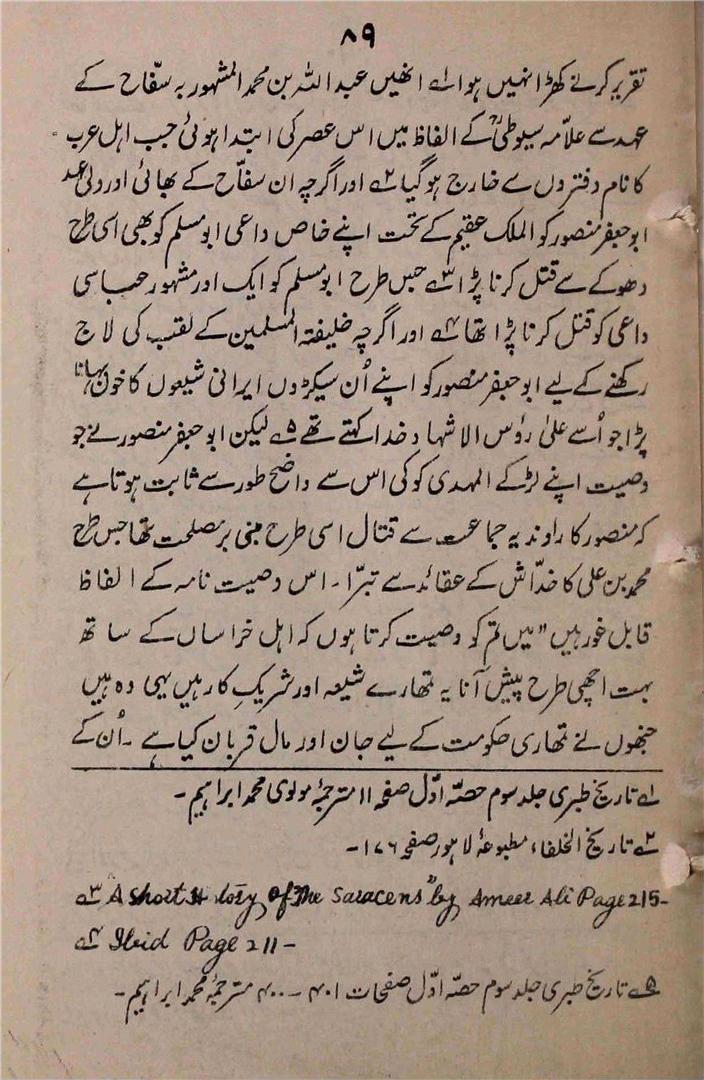 ۸۹
تقریر کرنے کھڑا نہیں ہوا ۱؎ انھیں عبد اللہ بن محمد المشہور بہ سفّاح کے
عہد سے علاّمہ سیوطیؒ کے الفاظ میں اس عصر کی ابتدا ہوئی جب اہل عرب
کا نام دفتروں سے خارج ہو گیا ۲؎ اور اگرچہ ان سفّاح کے بھائی اور ولی عہد
ابو جعفر منصور کو الملک عقیم کے تحت اپنے خاص داعی ابو مسلم کو بھی اسی طرح
دھوکے سے قتل کرنا پڑا ۳؎ جس طرح ابو مسلم کو ایک اور مشہور عباسی
داعی کو قتل کرنا پڑا تھا ۴؎ اور اگرچہ خلیفۃ المسلمین کے لقب کی لاج
رکھنے کے لیے ابو جعفر منصور کو اپنے اُن سیکڑوں ایرانی شیعوں کا خون بہانا
پڑا جو اُسے علیٰ رؤس الاشہاد خدا کہتے تھے ۵؎ لیکن ابو جعفر منصور نے جو
وصیت اپنے لڑکے المہدی کو کی اس سے واضح طور سے ثابت ہوتا ہے
کہ منصور کا راوندیہ جماعت سے قتال اسی طرح مبنی بر مصلحت تھا جس طرح
محمد بن علی کا خدّاش کے عقائد سے تبرّا۔ اس وصیت نامہ کے الفاظ
قابل غور ہیں "میں تم کو وصیت کرتا ہوں کہ اہل خراساں کے ساتھ
بہت اچھی طرح پیش آنا یہ تمھارے شیعہ اور شریکِ کار ہیں یہی وہ ہیں
جنھوں نے تمھاری حکومت کے لیے جان اور مال قربان کیا ہے ۔ اُن کے
۱؎ تاریخ طبری جلد سوم حصّہ اوّل صفحہ ۱۱ مترجمۂ مولوی محمد ابراہیم ۔
۲؎ تاریخ الخلفاء مطبوعۂ لاہور صفحہ ۱۷۶ ۔
۳؎ "A short History of the Saracens" by Ameer Ali Page 215-
۴؎ Ibid Page 211-
۵؎ تاریخ طبری جلد سوم حصّہ اوّل صفحات ۴۰۱ - ۴۰۰ مترجمۂ محمد ابراہیم ۔